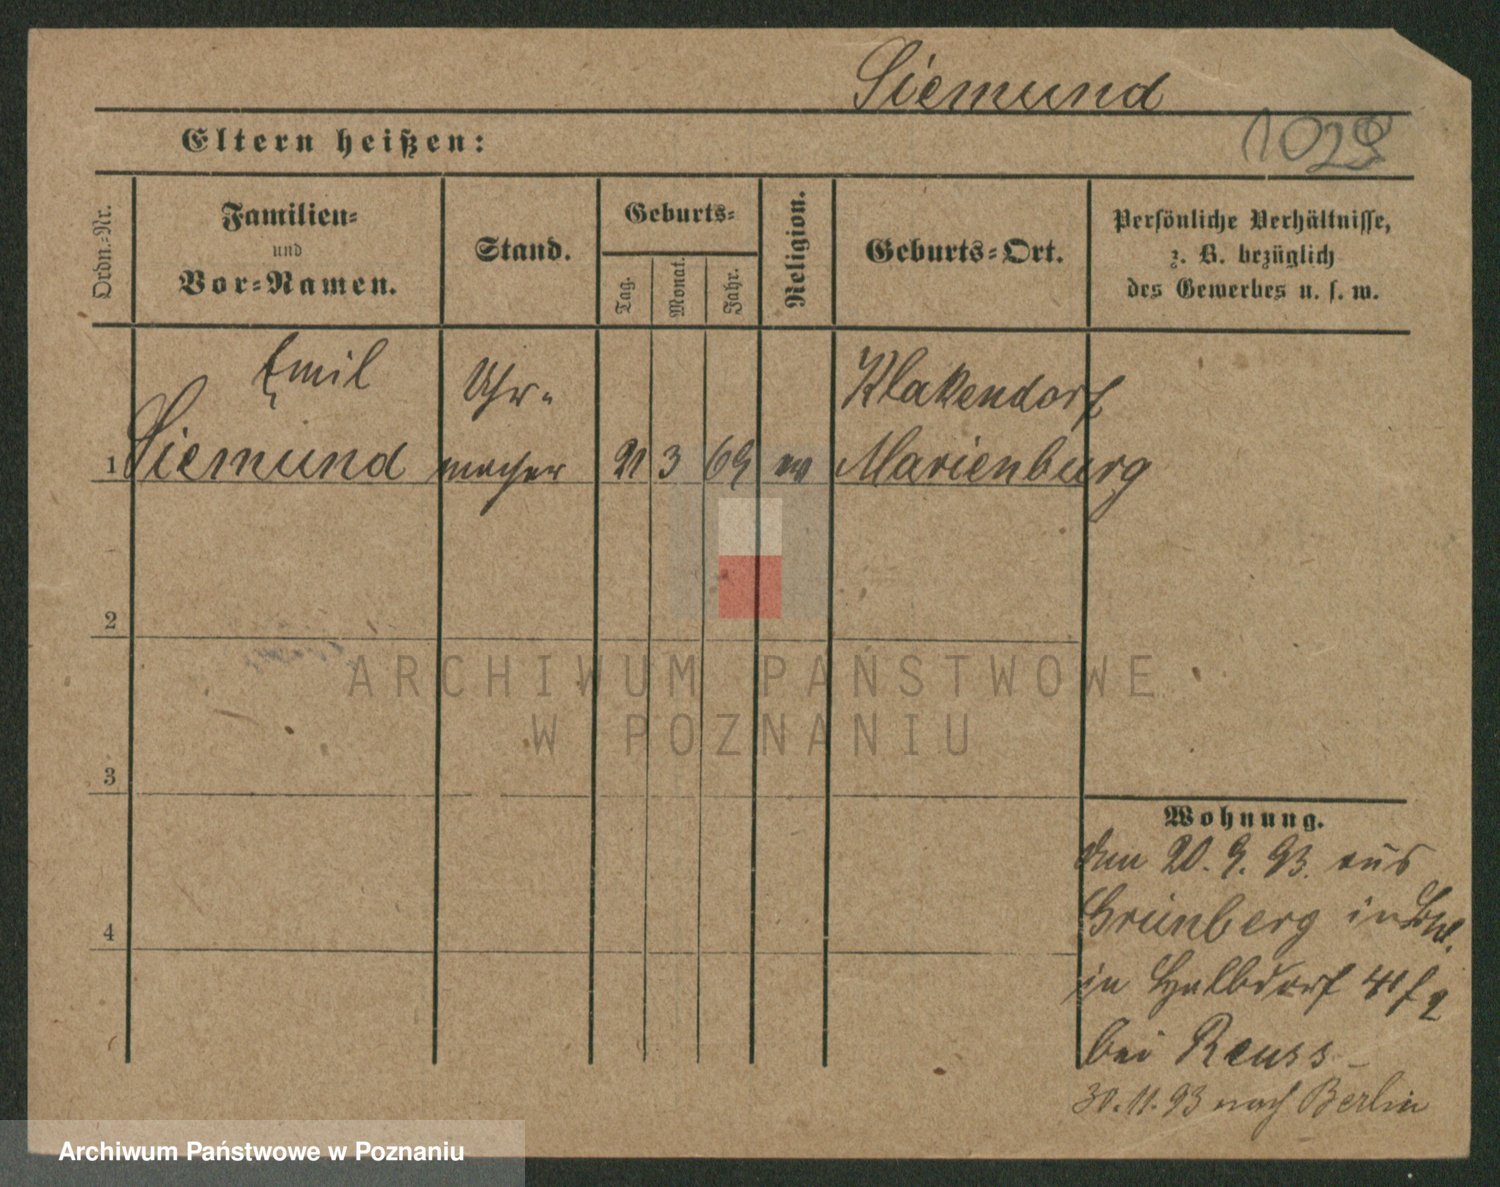 Siemund
Eltern heißen:
1029
Ordn.-Nr.
Familien-
und
Vor-Namen.
Stand.
Geburts-
Tag.
Monat.
Jahr.
Religion.
Geburts-Ort.
Persönliche Verhältnisse,
z. B. bezüglich
des Gewerbes u. s. w.
Emil
Uhr-
Klakendorf
1 Siemund macher 21 3 69 ev Marienburg
2
ARCHIWUM PAŃSTWOWE
W POZNANIU
3
Wohnung.
den 20. 9. 93. aus
4
Grünberg in
in Halbdorf
bei Reuss
30.11.93 nach Berlin
Archiwum Państwowe w Poznaniu